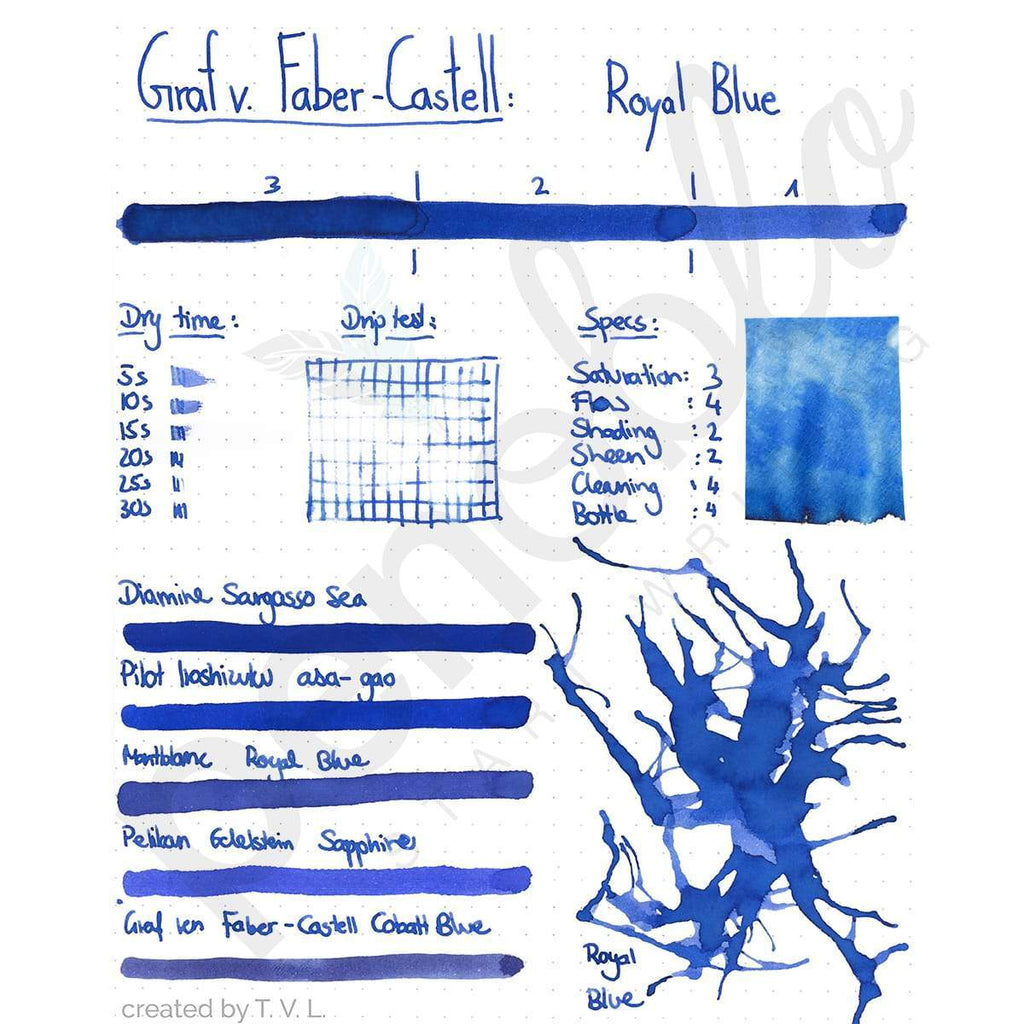 Graf v. Faber-Castell: Royal Blue
3 | 2 | 1
Dry time:
5s
10s
15s
20s
25s
30s
Drip test:
Specs:
Saturation: 3
Flow : 4
Shading : 2
Sheen : 2
Cleaning : 4
Bottle : 4
Diamine Sargasso Sea
Pilot Iroshizuku asa-gao
Montblanc Royal Blue
Pelikan Edelstein Sapphire
Graf von Faber-Castell Cobalt Blue
Royal
Blue
created by T. V. L.
penoblo
START WRITING